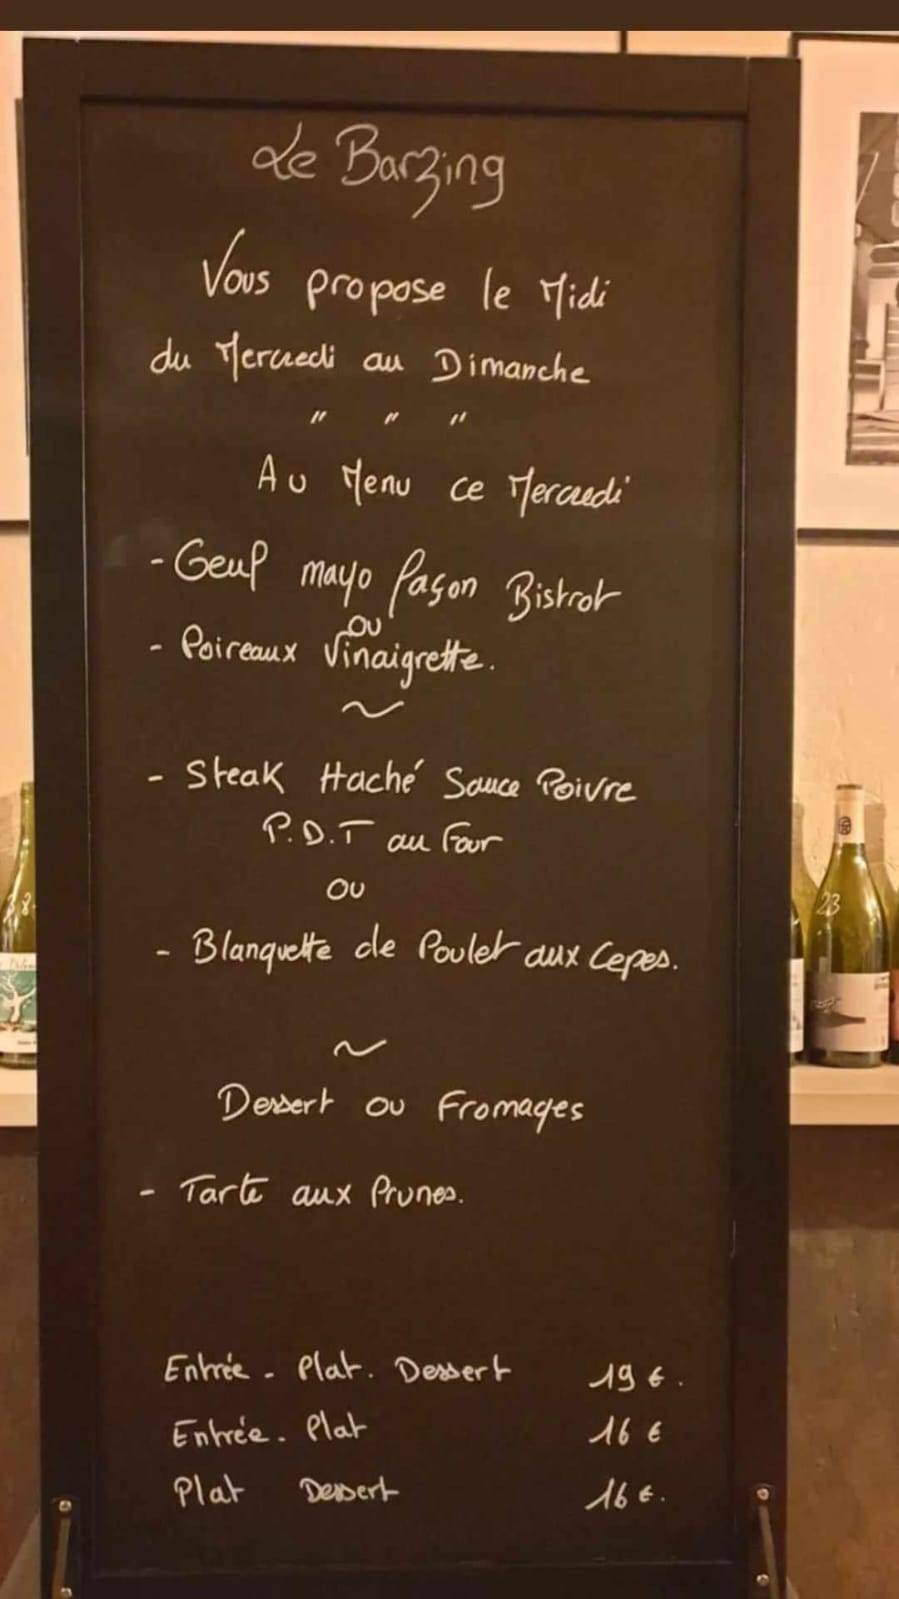 Le Barzing
Vous propose le Midi
du Mercredi au Dimanche
" " "
Au Menu ce Mercredi
- Oeuf mayo façon Bistrot
ou
- Poireaux Vinaigrette.
~
- Steak Haché Sauce Poivre
P.D.T au Four
ou
- Blanquette de Poulet aux Cepes.
~
Dessert ou Fromages
- Tarte aux Prunes.
Entrée - Plat. Dessert 19 €.
Entrée - Plat 16 €
Plat Dessert 16 €.
23